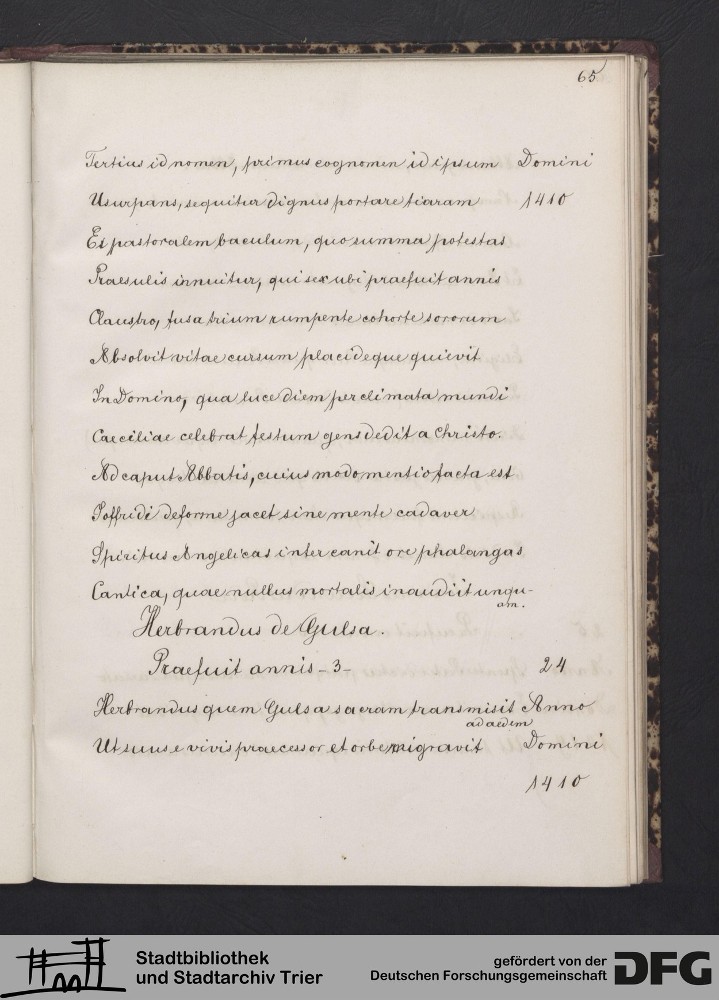 65
Tertius id nomen, primus cognomen id ipsum Domini
Usurpans, sequitur dignus portare tiaram 1410
Et pastoralem baculum, quo summa potestas
Praesulis innuitur, qui sex ubi praefuit annis
Claustro, fusa trium rumpente cohorte sororum
Absolvit vitae cursum placideque quievit
In Domino, qua luce diem per climata mundi
Caeciliae celebrat festum gens dedit a Christo.
Ad caput Abbatis, cuius modo mentio facta est
Joffridi deforme jacet sine mente cadaver
Spiritus Angelicas inter canit ore phalangas
Cantica, quae nullus mortalis inaudiit unqu-
am.
Herbrandus de Gulsa.
Praefuit annis -3- 24
Herbrandus quem Gulsa sacram transmisit Anno
ad aedem
Ut suus e vivis praecessor et orbe migravit Domini
1410
Stadtbibliothek
und Stadtarchiv Trier
gefördert von der
Deutschen Forschungsgemeinschaft
DFG